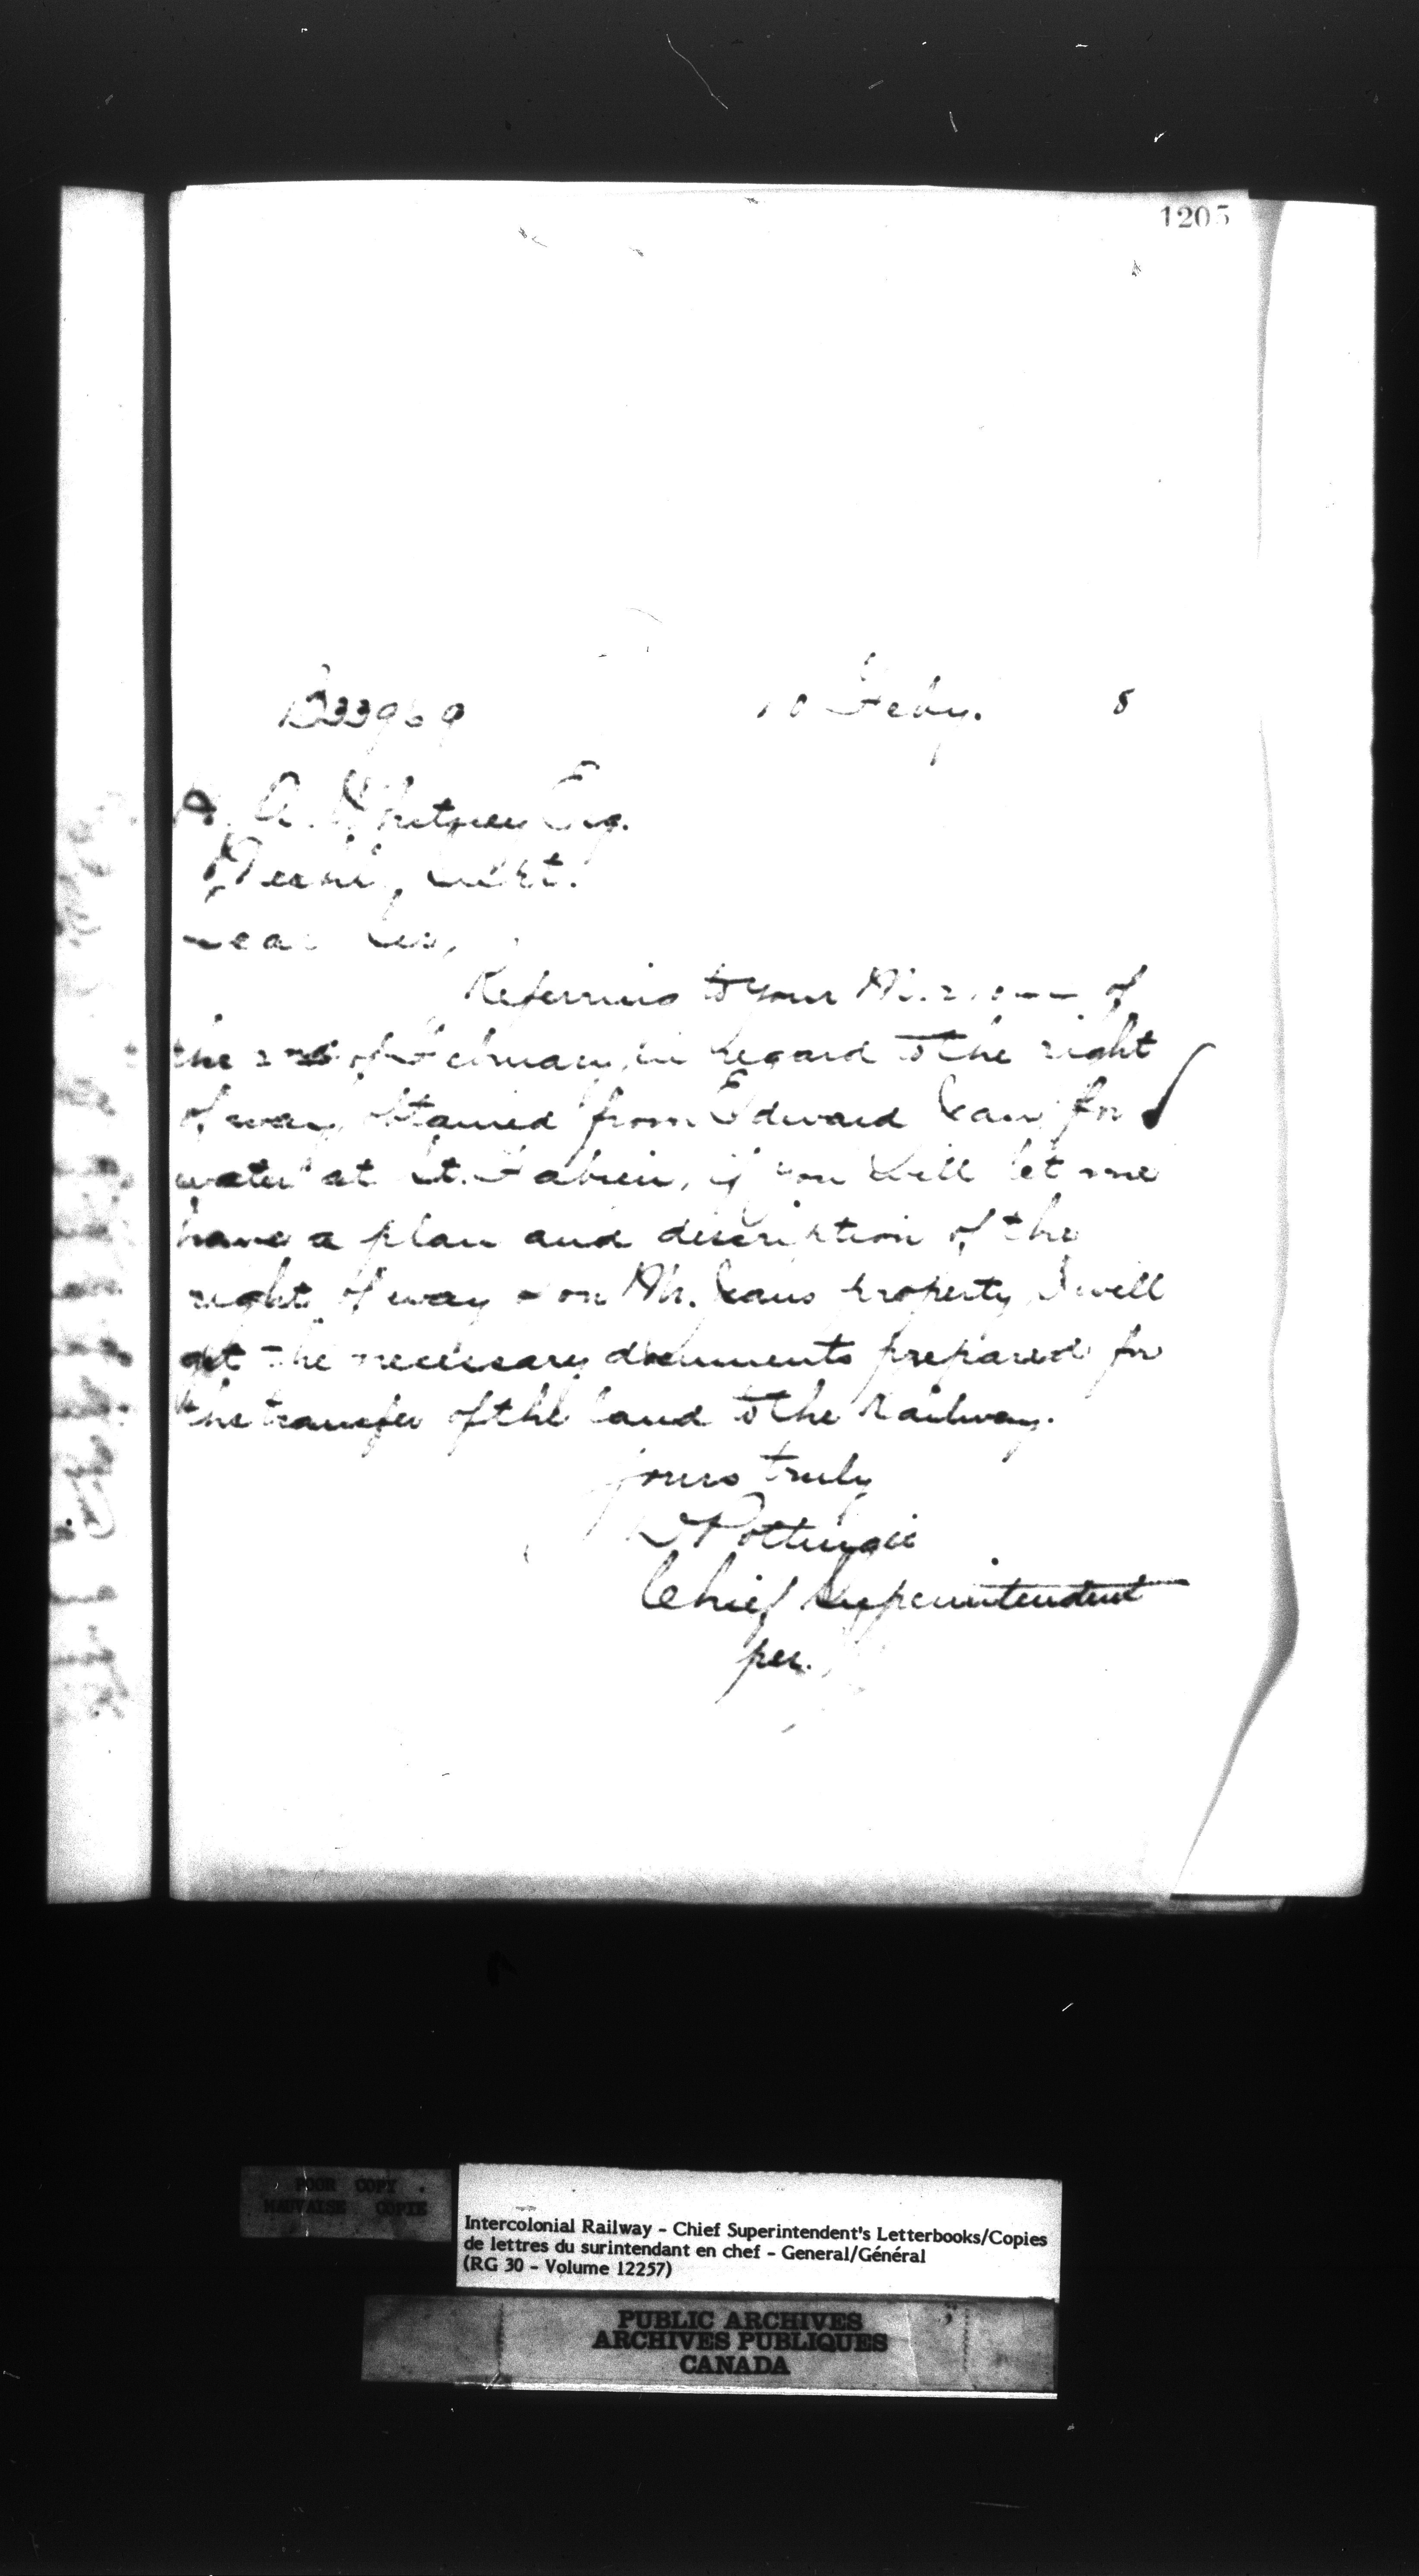 1205
B33969 10 Feby. 8
A. A. Whitney Esq.
Mechl. Supt.
Dear Sir,
Referring to your of
the 2nd of February, in regard to the right
of way obtained from Edward Jean for
water at St. Fabien, if you will let me
have a plan and description of the
right of way on Mr. Jeans property I will
get the necessary documents prepared for
the transfer of the land to the Railway.
Yours truly
D Pottinger
Chief Superintendent
per.
POOR COPY
MAUVAISE COPIE
Intercolonial Railway - Chief Superintendent's Letterbooks/Copies
de lettres du surintendant en chef - General/Général
(RG 30 - Volume 12257)
PUBLIC ARCHIVES
ARCHIVES PUBLIQUES
CANADA